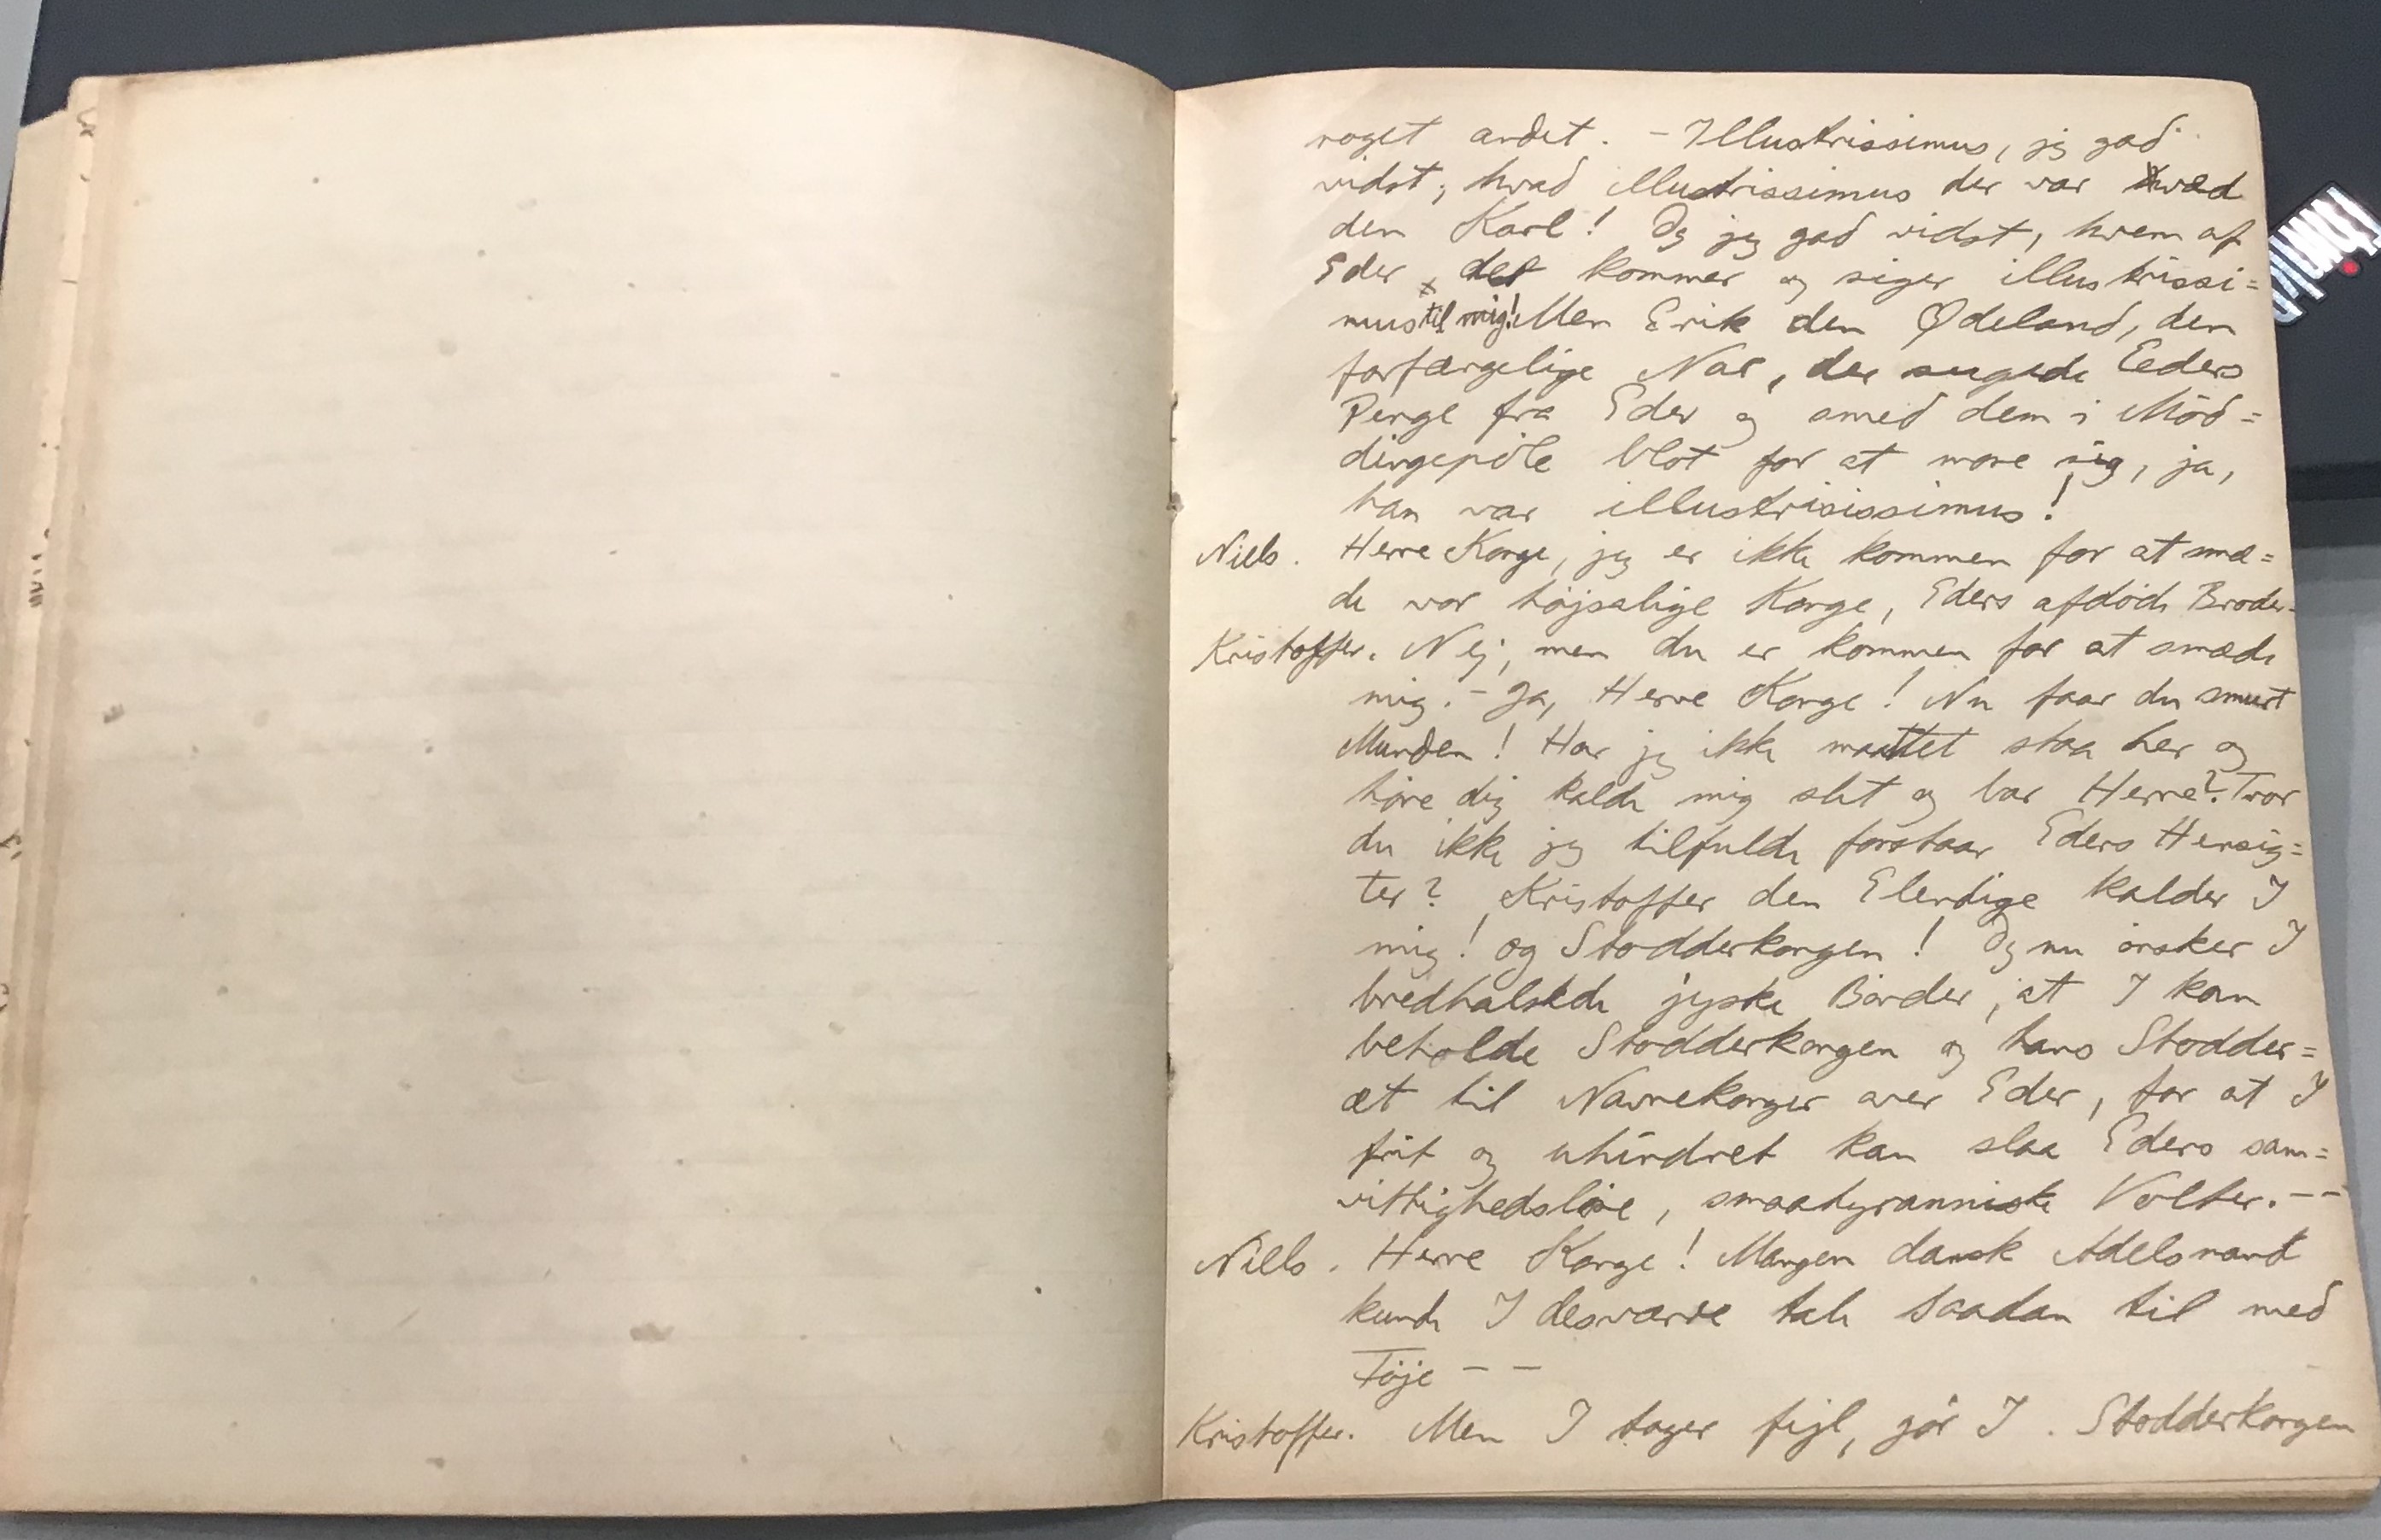 noget andet. - Illustrissimus, jeg gad
vidst, hvad illustrissimus der var ved
den Karl! Og jeg gad vidst, hvem af
Eder der kommer og siger illustrissi=
mus til mig! Men Erik den Ødeland, den
forfærgelige Nar, der sugede Eeders
Penge fra Eder og smed dem i Mød=
dingepøle blot for at more sig, ja,
han var illustrisissimus!
Niels. Herre Konge, jeg er ikke kommen for at smæ=
de vor højsalige Konge, Eders afdøde Broder-
Kristoffer. Nej, men du er kommen for at smæde
mig. - Ja, Herre Konge! Nu faar du smurt
Munden! Har jeg ikke maattet staa her og
høre dig kalde mig slet og bar Herre? Tror
du ikke jeg tilfulde forstaar Eders Hensig=
ter? Kristoffer den Elendige kalder I
mig! og Stodderkongen! Og nu ønsker I
bredhalsede jyske Bønder, at I kan
beholde Stodderkongen og hans Stodder=
æt til Navnekonger over Eder, for at I
frit og uhindret kan slaa Eders sam=
vittighedsløse, smaatyranniske Volter. --
Niels. Herre Konge! Mangen dansk Adelsmand
kunde I desværre tale saadan til med
Føje --
Kristoffer. Men I tager fejl, gør I. Stodderkongen